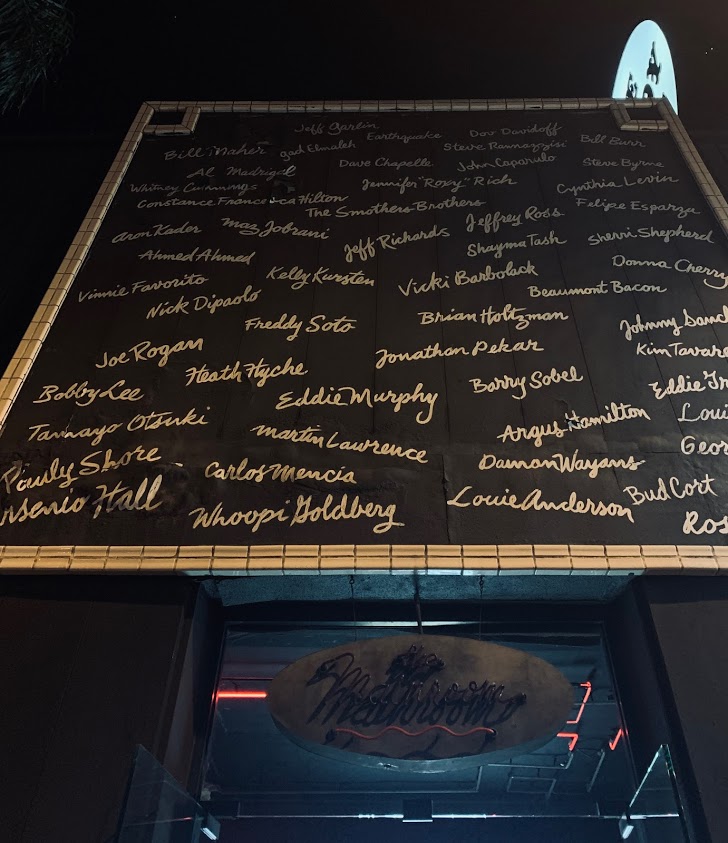 Jeff Garlin
Earthquake
Dov Davidoff
Bill Maher
gad Elmaleh
Steve Rannazzisi
Bill Burr
Al Madrigal
Dave Chapelle
John Caparulo
Steve Byrne
Whitney Cummings
Jennifer "Roxy" Rich
Cynthia Levin
Constance Francesca Hilton
The Smothers Brothers
Felipe Esparza
Aron Kader
Maz Jobrani
Jeff Richards
Jeffrey Ross
Shayma Tash
Sherri Shepherd
Ahmed Ahmed
Vinnie Favorito
Kelly Kursten
Vicki Barbolack
Donna Cherry
Nick Dipaolo
Beaumont Bacon
Freddy Soto
Brian Holtzman
Johnny Sanc
Joe Rogan
Heath Hyche
Jonathan Pekar
Kim Tavare
Bobby Lee
Eddie Murphy
Barry Sobel
Eddie Gr
Tamayo Otsuki
Martin Lawrence
Argus Hamilton
Loui
Pauly Shore
Carlos Mencia
Damon Wayans
Geor
rsenio Hall
Whoopi Goldberg
Louie Anderson
Bud Cort
Ros
the
Mainroom